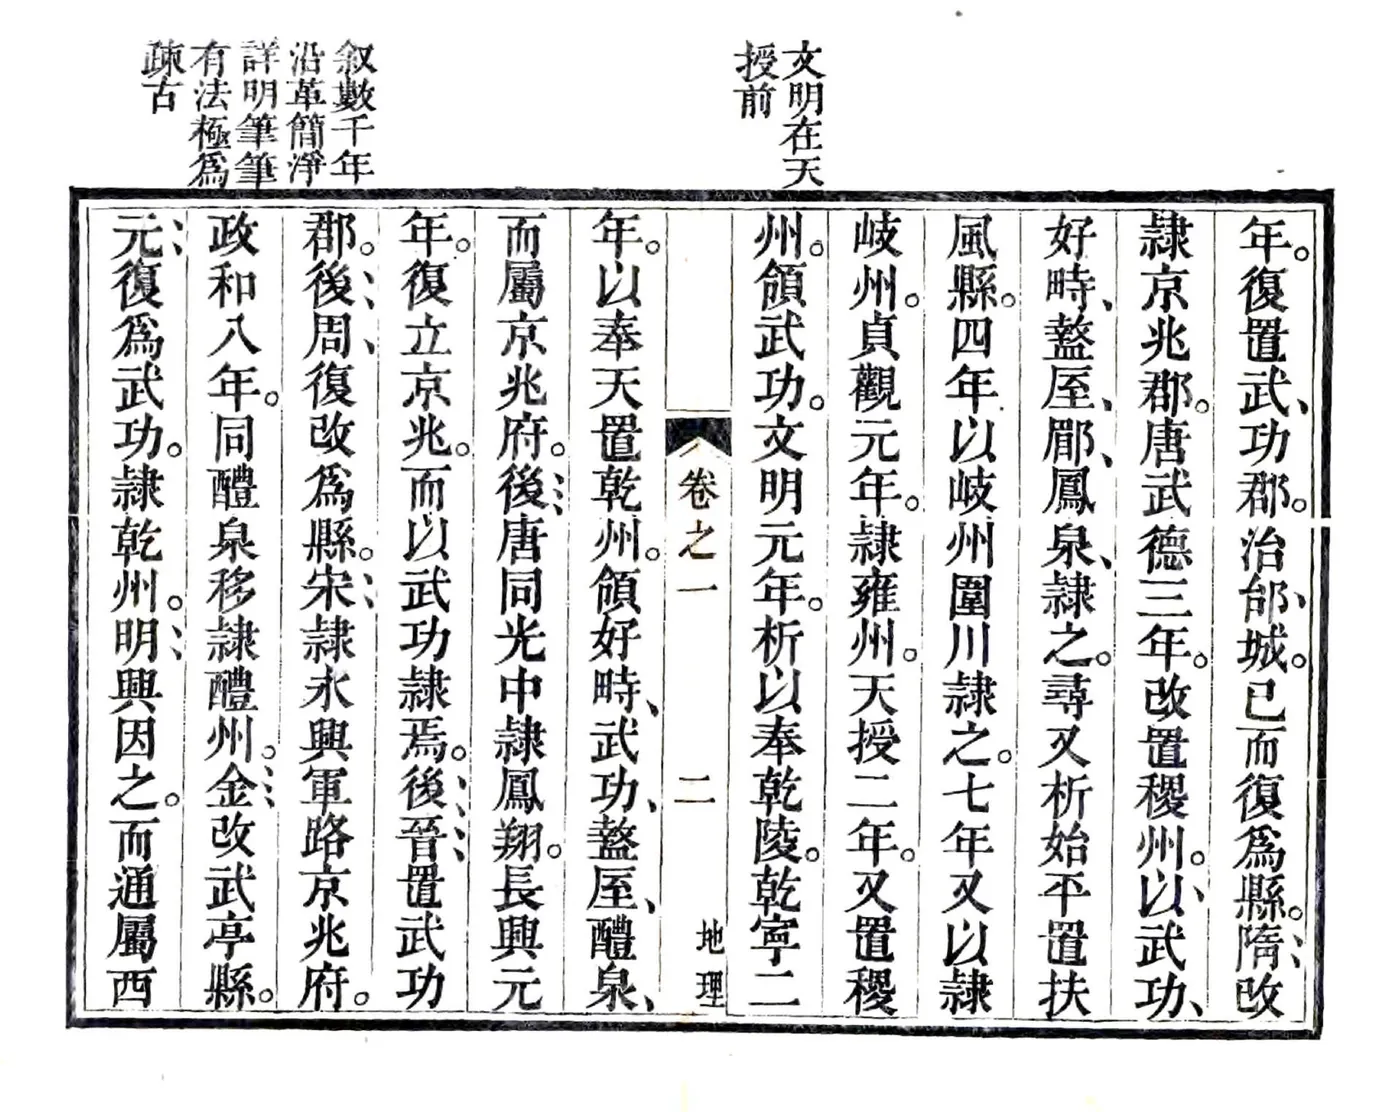 文明在天
授前
叙數千年
沿革簡淨
詳明筆筆
有法極爲
疎古
年。復置武、功郡。治邰、城。已而復爲縣。隋、改
隷京兆郡。唐武德三年。改置稷州。以、武功、
好畤、盩厔、郿、鳳泉、隷之。尋又析始平置扶
風縣。四年以岐州圍川隷之。七年又以隷
岐州。貞觀元年。隷雍州。天授二年。又置稷
州。領武功。文明元年。析以奉乾陵。乾寧二
卷之一
二
地理
年。以奉天置乾州。領好畤、武功、盩厔、醴泉、
而屬京兆府。後、唐同光中隷鳳翔。長興元
年。復立京兆。而以武功隷焉。後、晉、置武功
郡。後、周、復改爲縣。宋、隷永興軍路京兆府。
政和八年。同醴泉移隷醴州。金、改武亭縣。
元、復爲武功。隷乾州。明、興因之。而通屬西